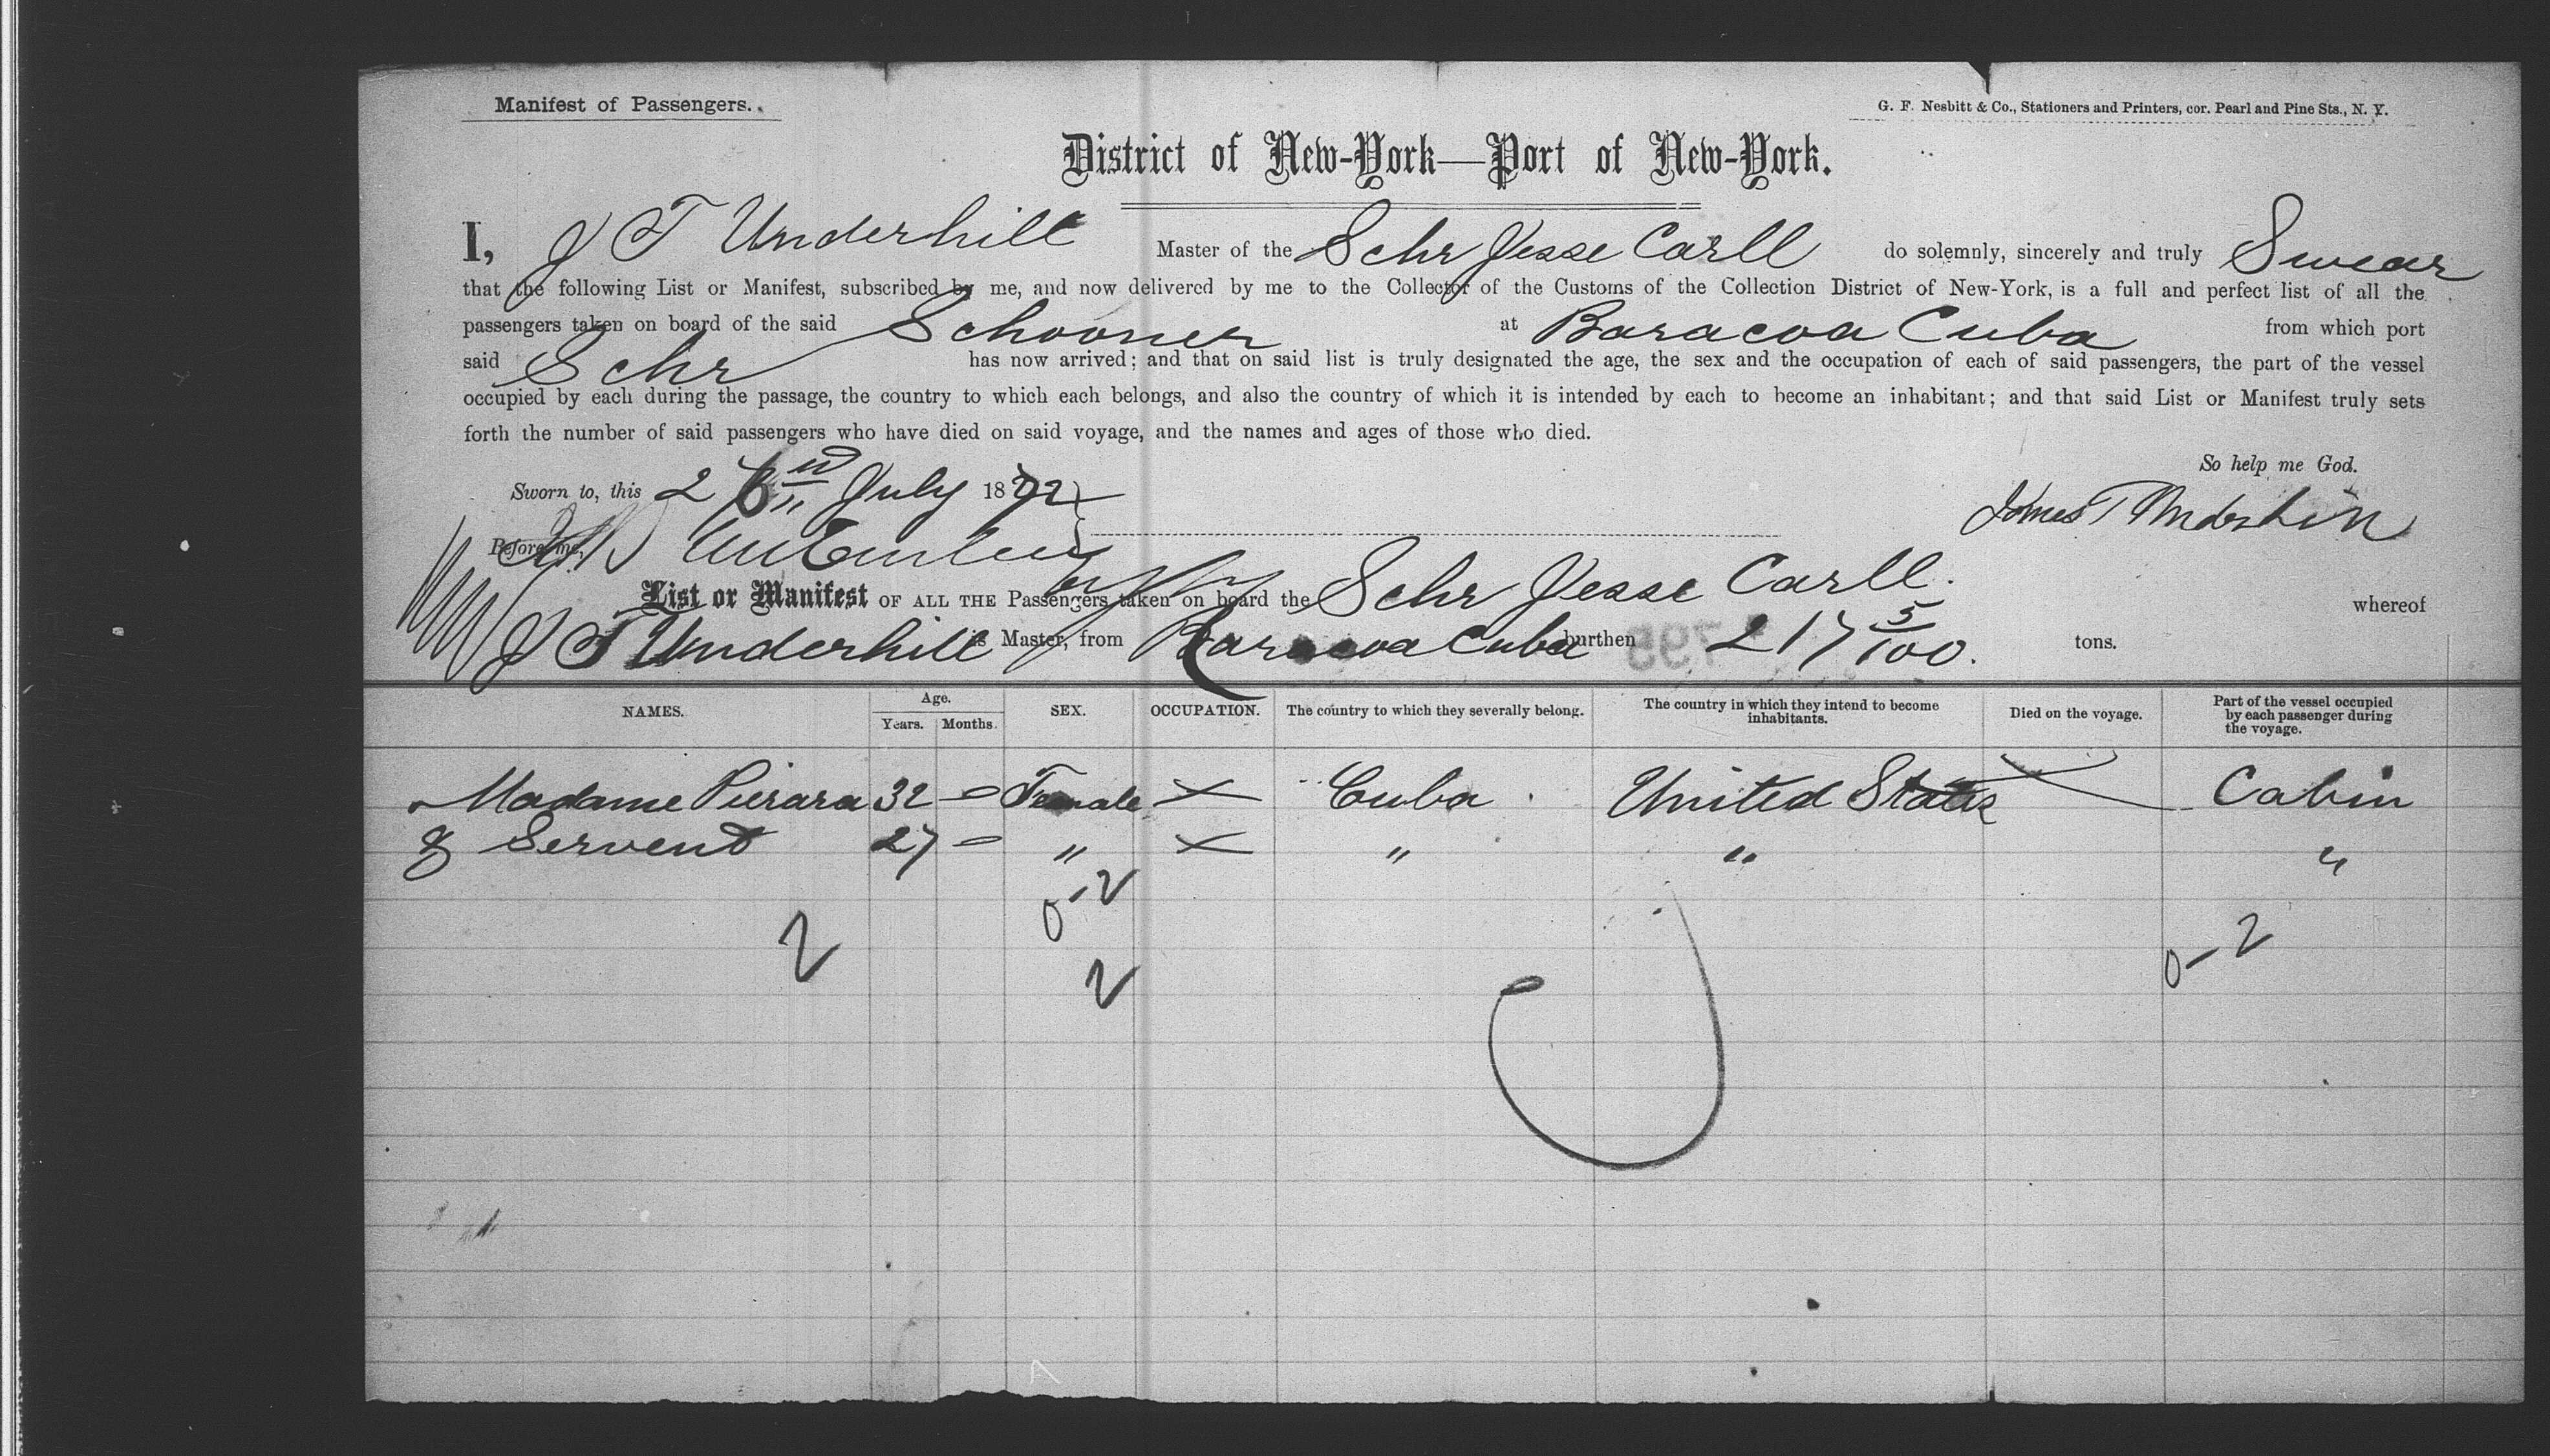 Manifest of Passengers.
G. F. Nesbitt & Co., Stationers and Printers, cor. Pearl and Pine Sts., N. Y.
District of New-York—Port of New-York.
I, J T Underhill Master of the Schr Jesse Carll do solemnly, sincerely and truly Swear
that the following List or Manifest, subscribed by me, and now delivered by me to the Collector of the Customs of the Collection District of New-York, is a full and perfect list of all the
passengers taken on board of the said Schooner at Baracoa Cuba from which port
said Schr has now arrived; and that on said list is truly designated the age, the sex and the occupation of each of said passengers, the part of the vessel
occupied by each during the passage, the country to which each belongs, and also the country of which it is intended by each to become an inhabitant; and that said List or Manifest truly sets
forth the number of said passengers who have died on said voyage, and the names and ages of those who died.
So help me God.
Sworn to, this July 18
James T Underhill
Before me,
List or Manifest OF ALL THE Passengers taken on board the Schr Jesse Carll. whereof
J T Underhill is Master, from Baracoa Cuba burthen 217 5/100. tons.
NAMES. Age. Years. Months. SEX. OCCUPATION. The country to which they severally belong. The country in which they intend to become inhabitants. Died on the voyage. Part of the vessel occupied by each passenger during the voyage.
Madame 32 - Female Cuba United States Cabin
Servent 27 - " " " "
0-2
2 0-2
2